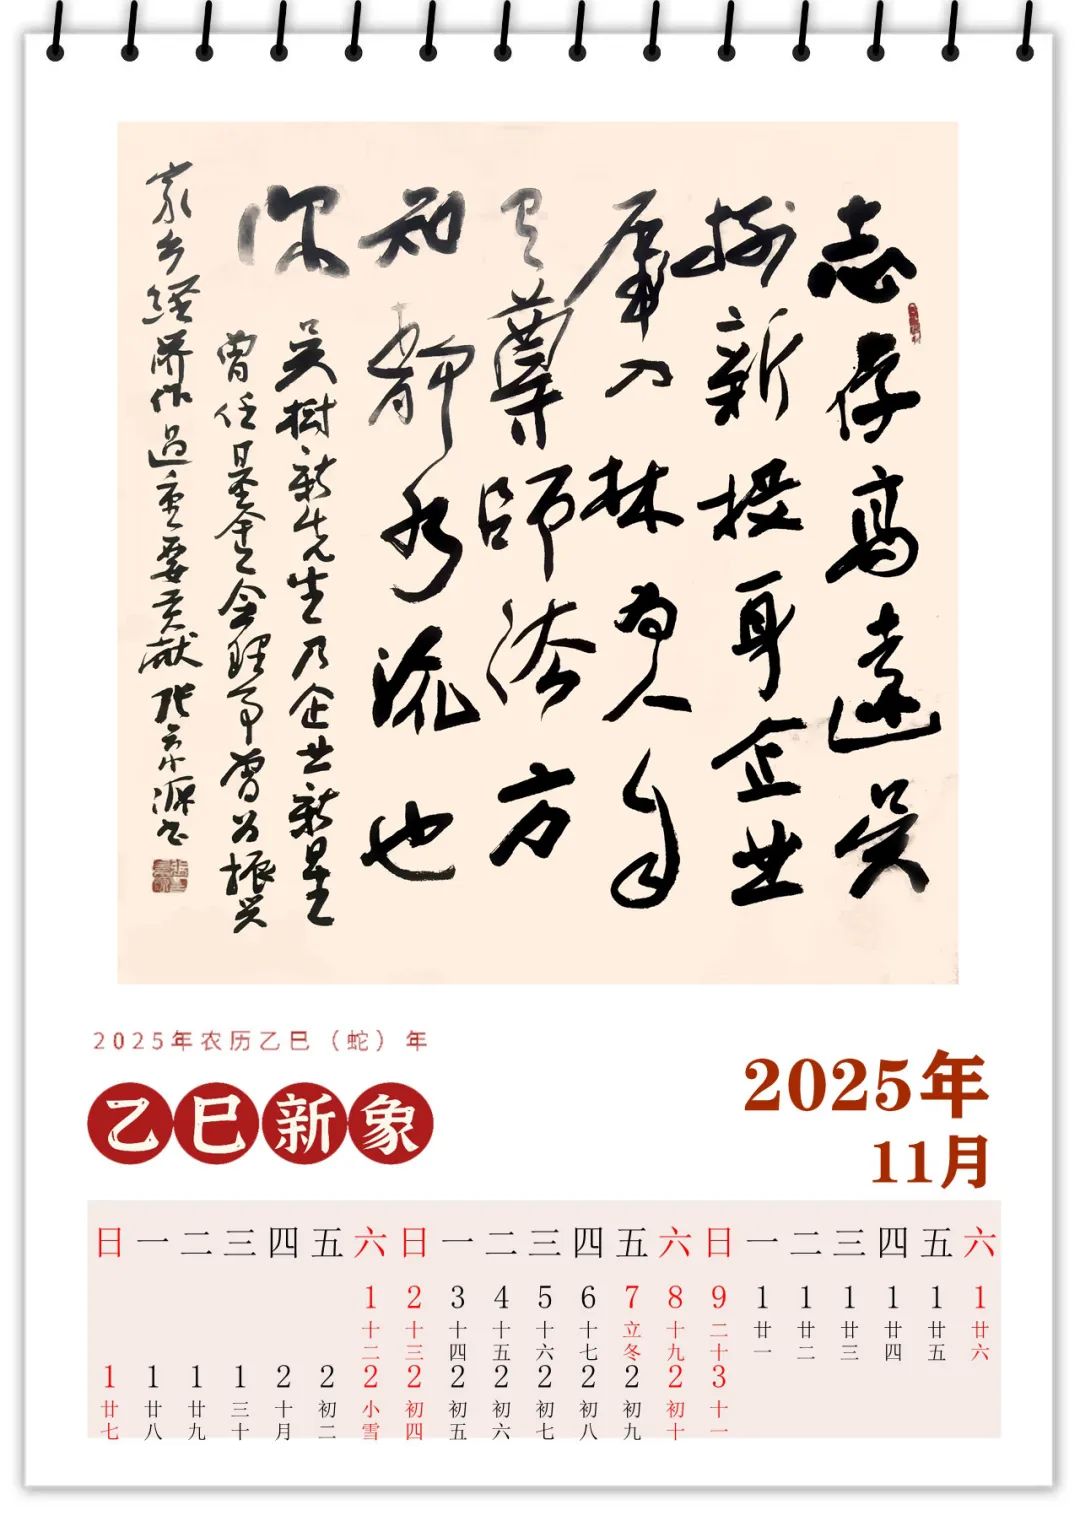 志存高遠吴
樹新投身企业
入林为人
師法方
知静水流也
深
吴樹新先生乃企业新星
曾任基金会理事曾为振兴
家乡经济作过重要贡献 张京源书
2025年农历乙巳（蛇）年
乙巳新象
2025年
11月
日 一 二 三 四 五 六 日 一 二 三 四 五 六 日 一 二 三 四 五 六
1 2 3 4 5 6 7 8 9 1 1 1 1 1 1
十二 十三 十四 十五 十六 十七 立冬 十九 二十 廿一 廿二 廿三 廿四 廿五 廿六
1 1 1 1 2 2 2 2 2 2 2 2 2 2 3
廿七 廿八 廿九 三十 十月 初二 小雪 初四 初五 初六 初七 初八 初九 初十 十一